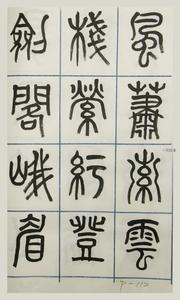 風蕭索雲
棧縈紆登
劍閣峨眉